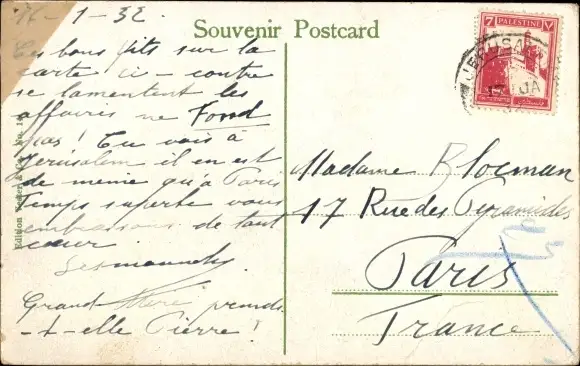 16-1-32
Souvenir Postcard
Ces bons fits sur la
carte ci-contre
se lamentent les
affaires ne Fond
pas! Tu vois à
Jérusalem il en est
de même qu'à Paris
Temps superbe vous
embrassons de tout
cœur
Grand Mère prends
-t-elle Pierre!
Madame R. Locman
17 Rue des Pyramides
Paris
France
7 PALESTINE 7
JERUSA
JA
Edition